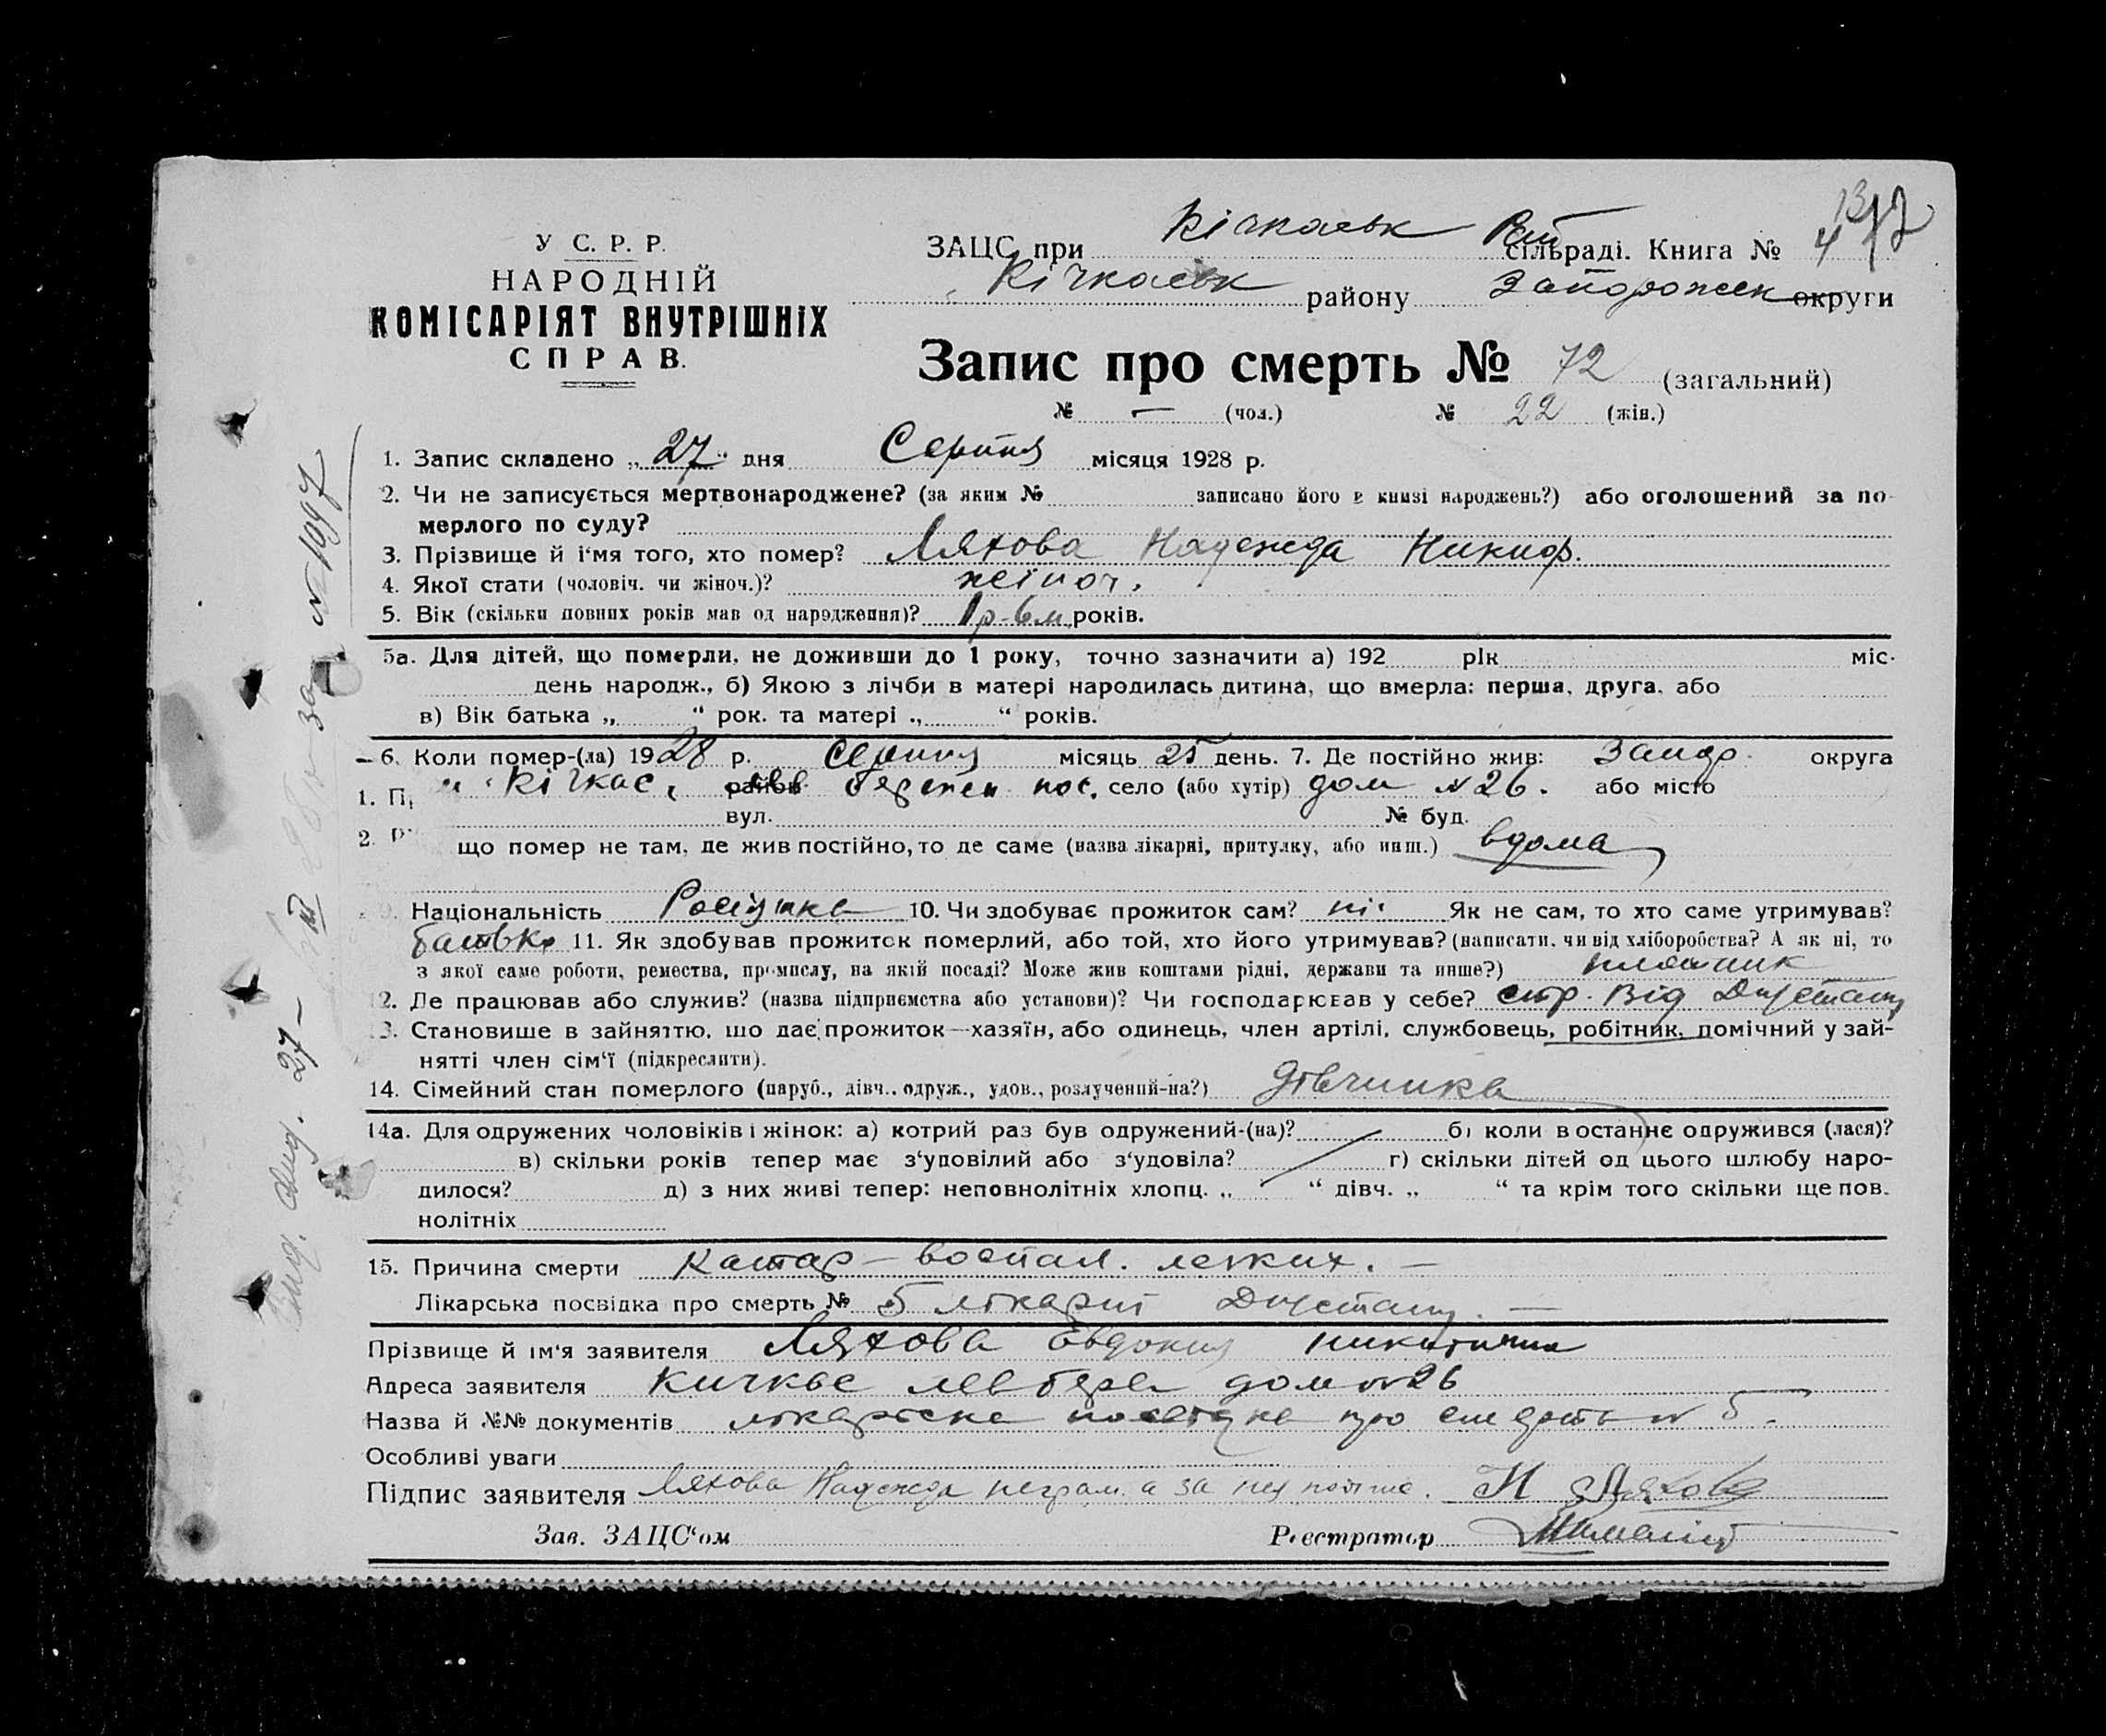 У С. Р. Р.
НАРОДНІЙ
КОМІСАРІЯТ ВНУТРІШНІХ
СПРАВ.
ЗАЦС при Кічкаськ Рай сільраді. Книга № 4
Кічкаськ району Запорожск округи
Запис про смерть № 72 (загальний)
№ — (чол.) № 22 (жін.)
1. Запис складено „27“ дня Серпня місяця 1928 р.
2. Чи не записується мертвонароджене? (за яким № записано його в книзі народжень?) або оголошений за по-
мерлого по суду?
3. Прізвище й і'мя того, хто помер? Ляхова Надежда Никиф.
4. Якої стати (чоловіч. чи жіноч.)? жіноч.
5. Вік (скільки повних років мав од народження)? 1р-6м. років.
5а. Для дітей, що померли, не доживши до 1 року, точно зазначити а) 192 рік міс.
день народж., б) Якою з лічби в матері народилась дитина, що вмерла: перша, друга, або
в) Вік батька „ “ рок. та матері „ “ років.
6. Коли помер-(ла) 1928 р. серпня місяць 25 день. 7. Де постійно жив: Запор. округа
1. П м. Кічкас, район пос. село (або хутір) дом №26. або місто
вул. № буд.
2. що помер не там, де жив постійно, то де саме (назва лікарні, притулку, або инш.) вдома
9. Національність Росіянка 10. Чи здобуває прожиток сам? ні. Як не сам, то хто саме утримував?
батько 11. Як здобував прожиток померлий, або той, хто його утримував? (написати, чи від хліборобства? А як ні, то
з якої саме роботи, ремества, промислу, на якій посаді? Може жив коштами рідні, держави та инше?)
12. Де працював або служив? (назва підприємства або установи)? Чи господарював у себе? Від
13. Становище в зайняттю, що дає прожиток—хазяїн, або одинець, член артілі, службовець, робітник, помічний у зай-
нятті член сім'ї (підкреслити).
14. Сімейний стан померлого (паруб., дівч., одруж., удов., розлучений-на?) Дівчинка
14а. Для одружених чоловіків і жінок: а) котрий раз був одружений-(на)? б) коли востаннє одружився (лася)?
в) скільки років тепер має з'уповілий або з'удовіла? г) скільки дітей од цього шлюбу наро-
дилося? д) з них живі тепер: неповнолітніх хлопц. „ “ дівч. „ “ та крім того скільки ще пов.
нолітніх
15. Причина смерти Катар—воспал. легких. —
Лікарська посвідка про смерть № 5 лікарні —
Прізвище й ім'я заявителя Ляхова Евдокия Никитична
Адреса заявителя Кичкас лев берег дом №26
Назва й №№ документів лікарська посвідка про смерть № 5.
Особливі уваги
Підпис заявителя Ляхова Надежда неграм. а за неї Н Ляхов
Зав. ЗАЦС'ом Реєстратор